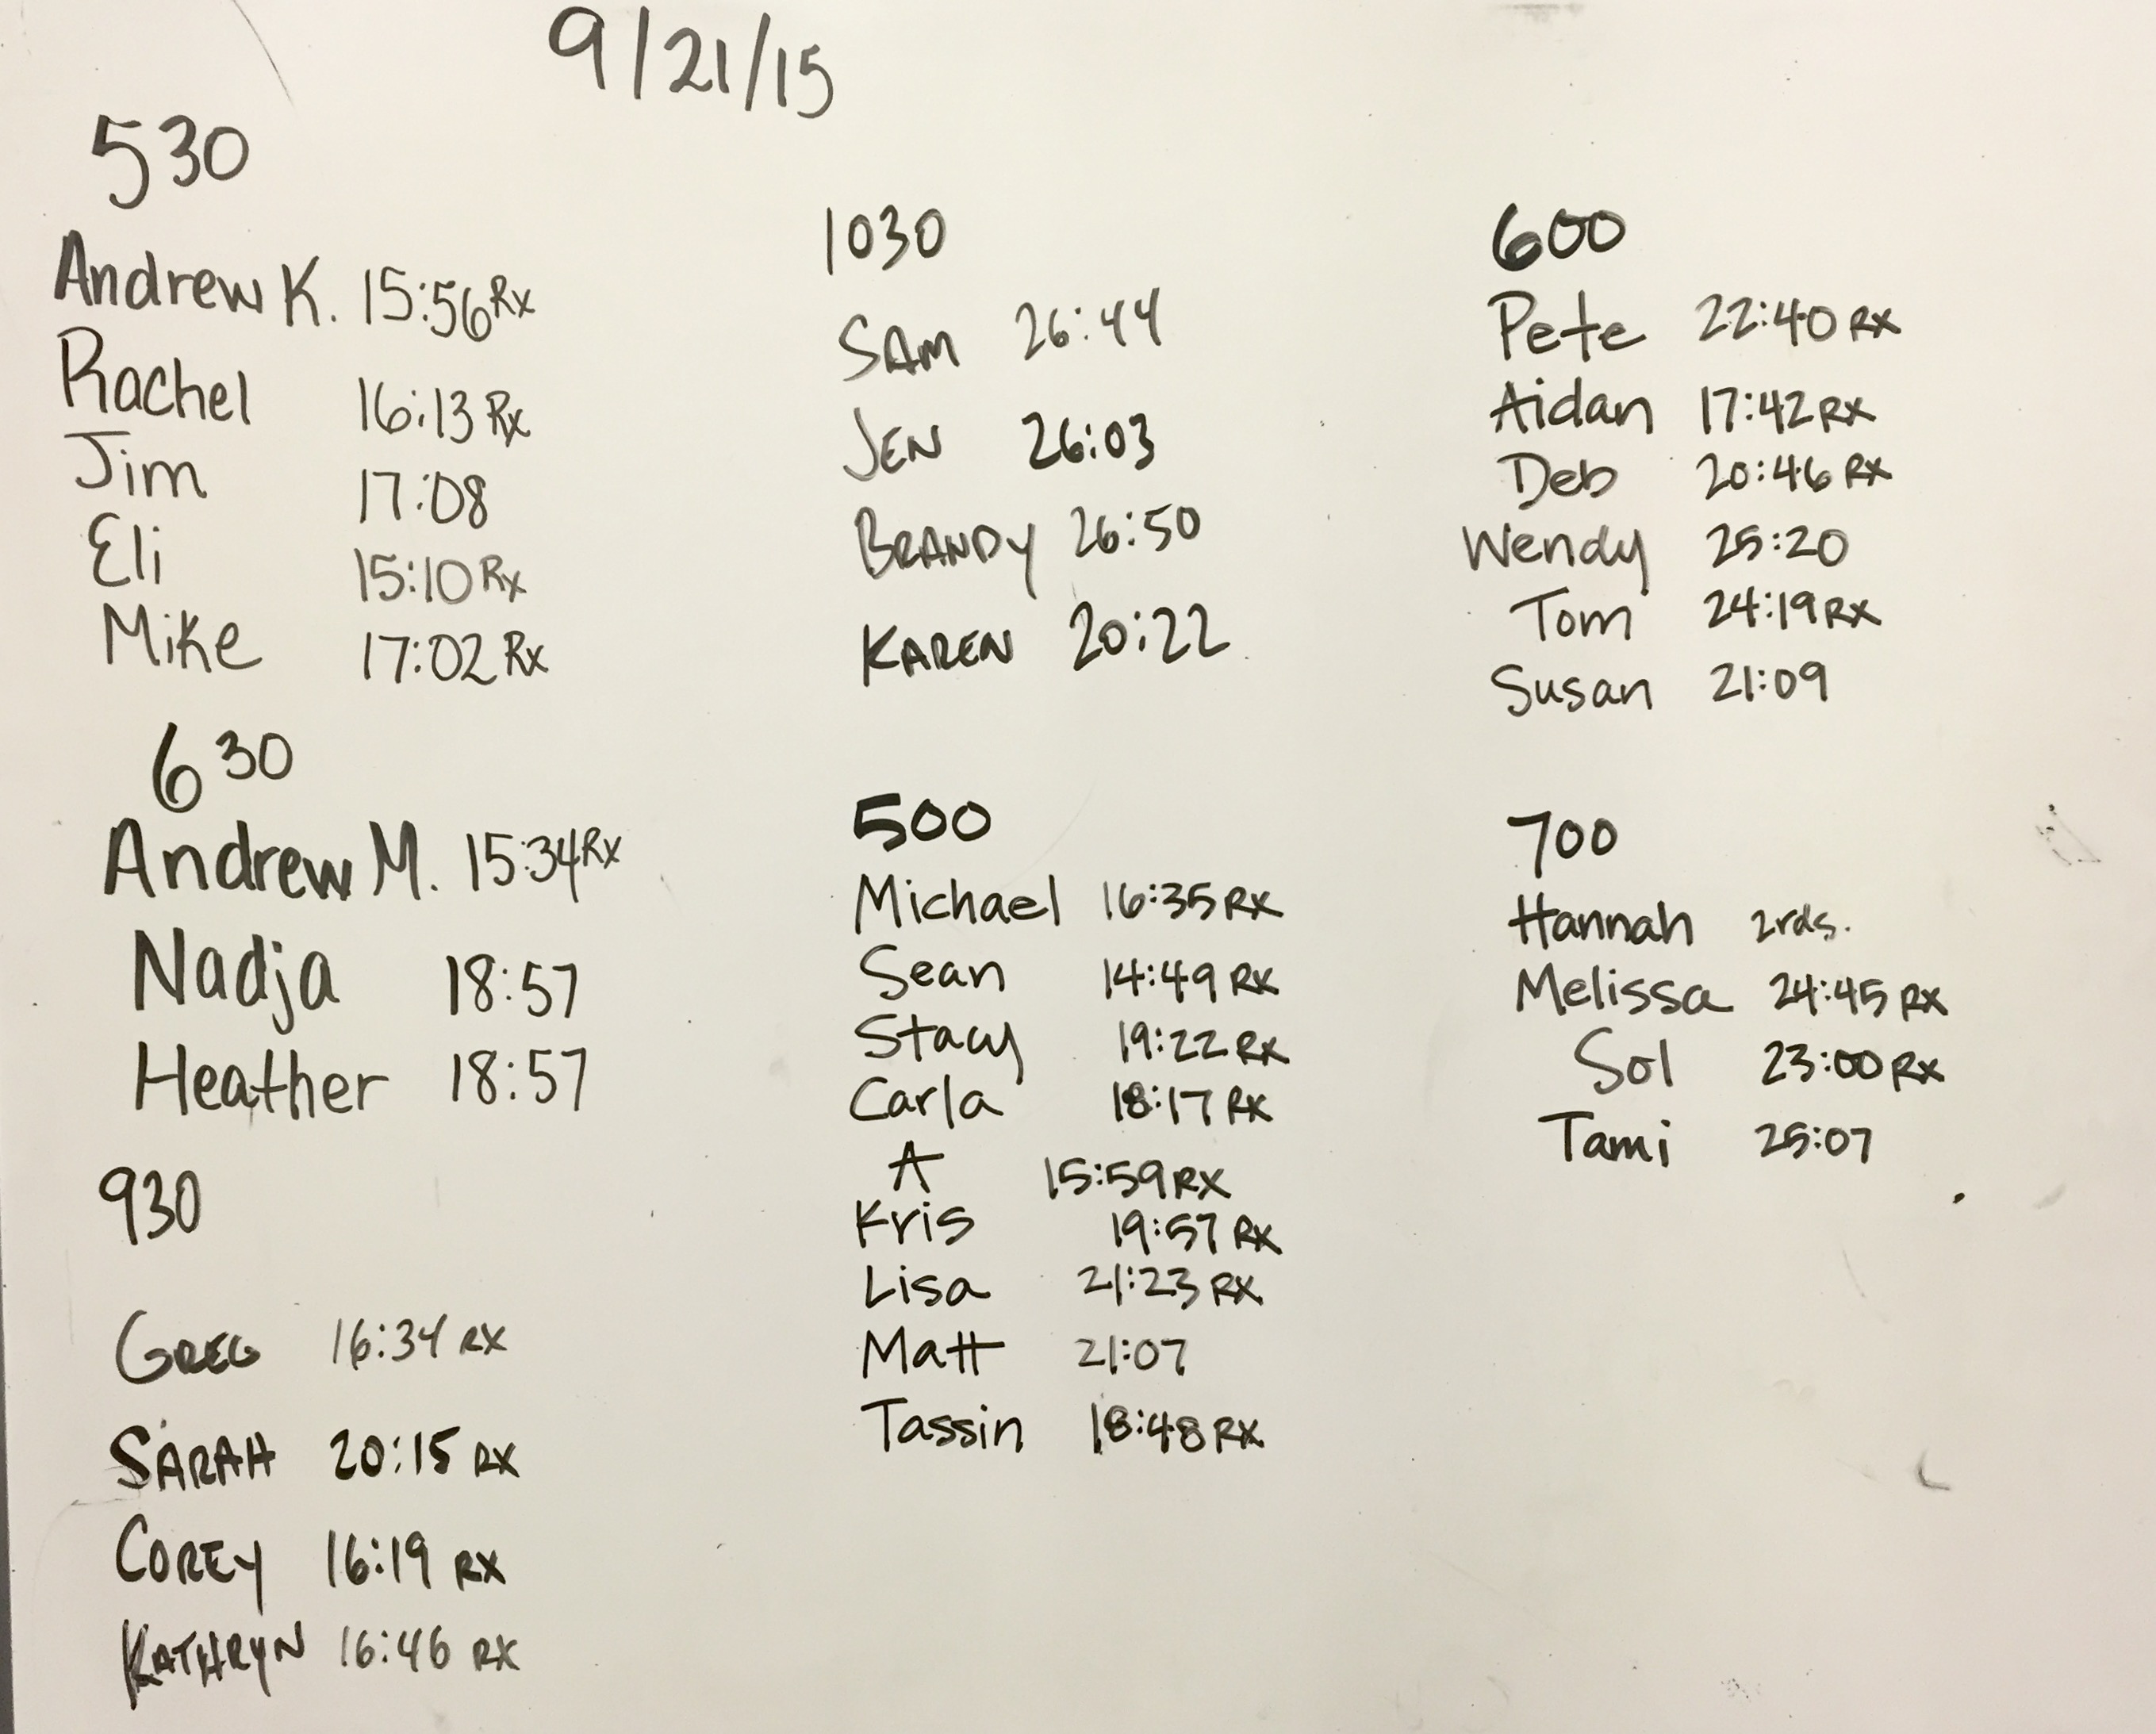 9/21/15
530
Andrew K. 15:56 Rx
Rachel 16:13 Rx
Jim 17:08
Eli 15:10 Rx
Mike 17:02 Rx
630
Andrew M. 15:34 Rx
Nadja 18:57
Heather 18:57
930
GREG 16:34 RX
SARAH 20:15 RX
COREY 16:19 RX
KATHRYN 16:46 RX
1030
SAM 26:44
JEN 26:03
BRANDY 26:50
KAREN 20:22
500
Michael 16:35 RX
Sean 14:49 RX
Stacy 19:22 RX
Carla 18:17 RX
A 15:59 RX
Kris 19:57 RX
Lisa 21:23 RX
Matt 21:07
Tassin 18:48 RX
600
Pete 22:40 RX
Aidan 17:42 RX
Deb 20:46 RX
Wendy 25:20
Tom 24:19 RX
Susan 21:09
700
Hannah 2rds.
Melissa 24:45 RX
Sol 23:00 RX
Tami 25:07